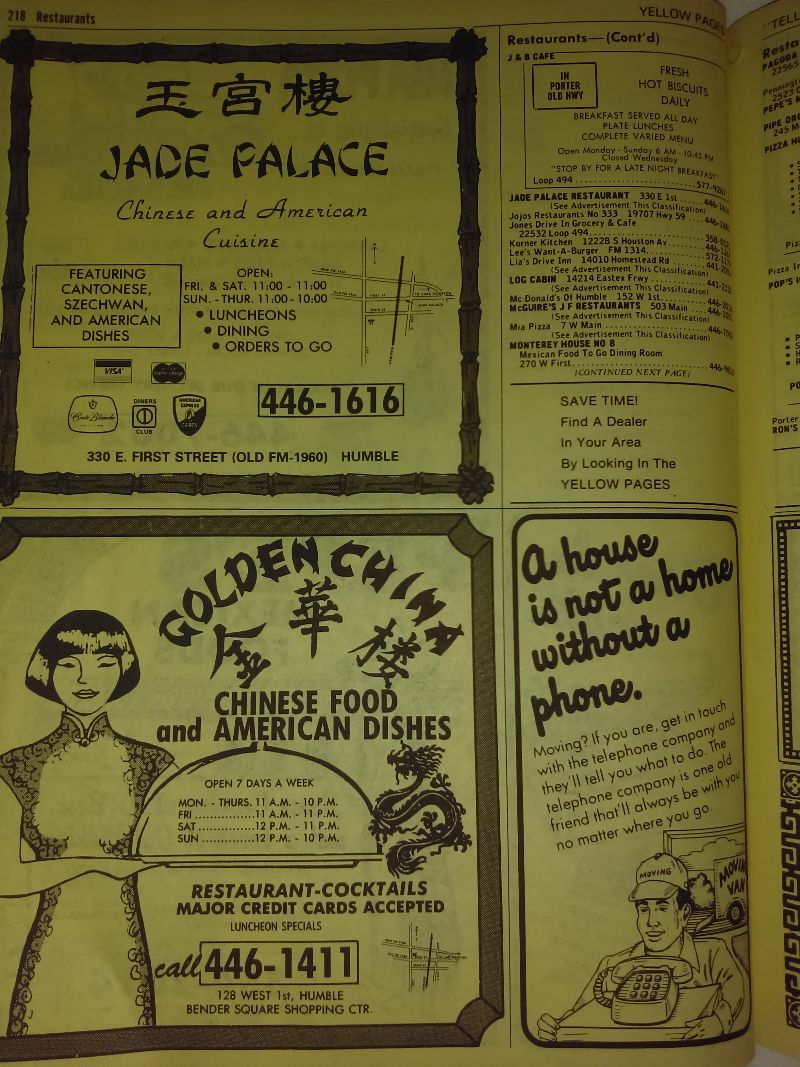 218 Restaurants
YELLOW PAGES
玉宮樓
JADE PALACE
Chinese and American
Cuisine
FEATURING
CANTONESE,
SZECHWAN,
AND AMERICAN
DISHES
OPEN:
FRI. & SAT. 11:00 - 11:00
SUN. - THUR. 11:00 - 10:00
• LUNCHEONS
• DINING
• ORDERS TO GO
VISA
master charge
Carte Blanche
DINERS
CLUB
AMERICAN
EXPRESS
CARDS
446-1616
330 E. FIRST STREET (OLD FM-1960) HUMBLE
GOLDEN CHINA
金華樓
CHINESE FOOD
and AMERICAN DISHES
OPEN 7 DAYS A WEEK
MON. - THURS. 11 A.M. - 10 P.M.
FRI ............... 11 A.M. - 11 P.M.
SAT .............. 12 P.M. - 11 P.M.
SUN .............. 12 P.M. - 10 P.M.
RESTAURANT-COCKTAILS
MAJOR CREDIT CARDS ACCEPTED
LUNCHEON SPECIALS
call 446-1411
128 WEST 1st, HUMBLE
BENDER SQUARE SHOPPING CTR.
Restaurants—(Cont'd)
J & B CAFE
IN
PORTER
OLD HWY
FRESH
HOT BISCUITS
DAILY
BREAKFAST SERVED ALL DAY
PLATE LUNCHES
COMPLETE VARIED MENU
Open Monday - Sunday 6 AM - 10:45 PM
Closed Wednesday
"STOP BY FOR A LATE NIGHT BREAKFAST"
Loop 494
JADE PALACE RESTAURANT 330 E 1st
(See Advertisement This Classification)
Jojos Restaurants No 333 19707 Hwy 59
Jones Drive In Grocery & Cafe
22532 Loop 494
Korner Kitchen 1222B S Houston Av
Lee's Want-A-Burger FM 1314
Lia's Drive Inn 14010 Homestead Rd
(See Advertisement This Classification)
LOG CABIN 14214 Eastex Frwy
(See Advertisement This Classification)
Mc Donald's Of Humble 152 W 1st
McGUIRE'S J F RESTAURANTS 503 Main
(See Advertisement This Classification)
Mia Pizza 7 W Main
(See Advertisement This Classification)
MONTEREY HOUSE NO 8
Mexican Food To Go Dining Room
270 W First
(CONTINUED NEXT PAGE)
SAVE TIME!
Find A Dealer
In Your Area
By Looking In The
YELLOW PAGES
A house
is not a home
without a
phone.
Moving? If you are, get in touch
with the telephone company and
they'll tell you what to do. The
telephone company is one old
friend that'll always be with you
no matter where you go.
MOVING
MOVING
VAN
"TELL
PAGODA
22565
2523
PEPE'S
PIPE
245
PIZZA
Pizza
POP'S
Porter
RON'S